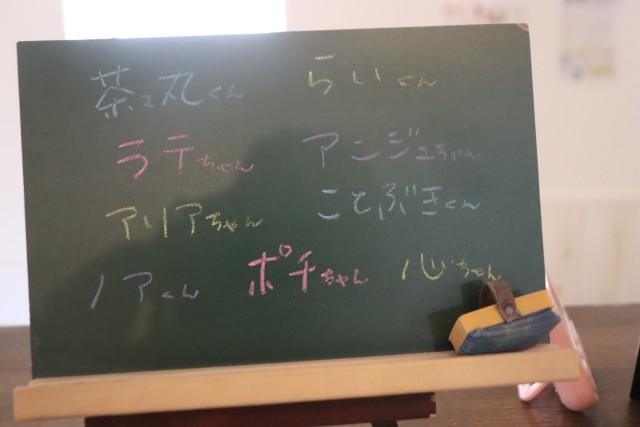 茶々丸くん らいくん
ラテちゃん アンジュちゃん
アリアちゃん ことぶきくん
ノアくん ポチちゃん 心ちゃん